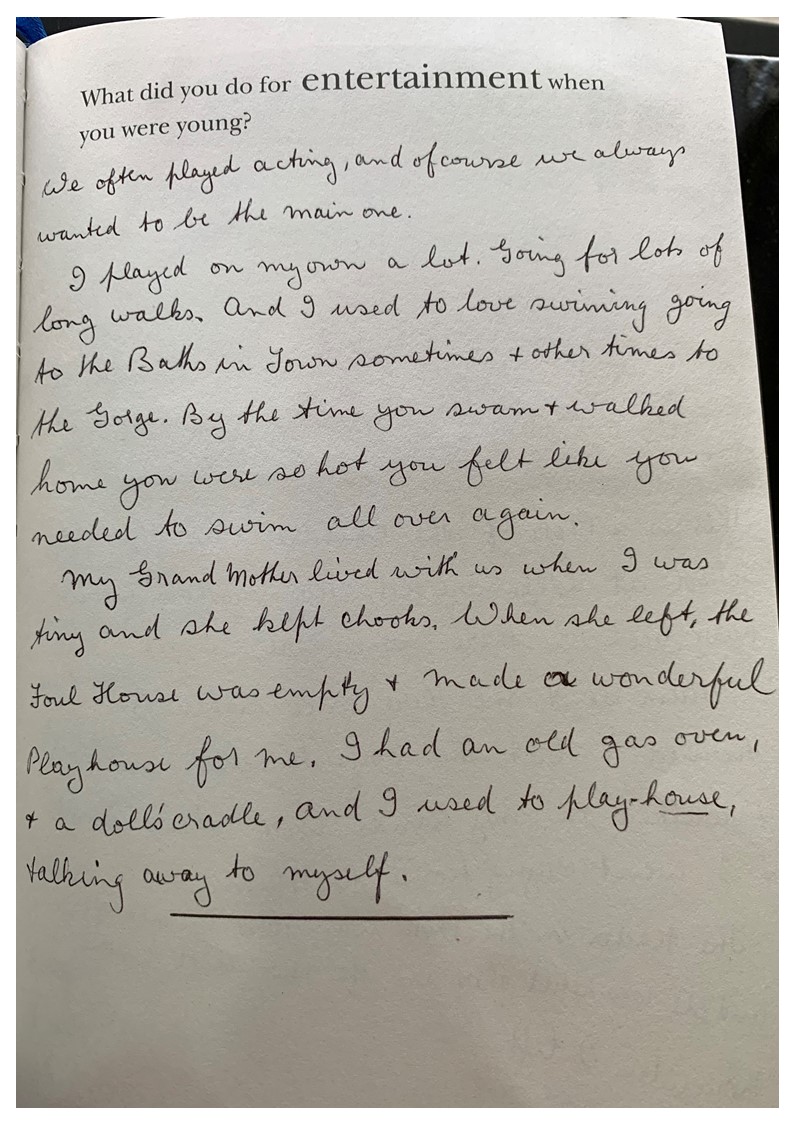 What did you do for entertainment when
you were young?
We often played acting, and of course we always
wanted to be the main one.
I played on my own a lot. Going for lots of
long walks. And I used to love swiming going
to the Baths in Town sometimes + other times to
the Gorge. By the time you swam + walked
home you were so hot you felt like you
needed to swim all over again.
My Grand Mother lived with us when I was
tiny and she kept chooks. When she left, the
Foul House was empty + made a wonderful
Playhouse for me. I had an old gas oven,
+ a doll's cradle, and I used to play-house,
talking away to myself.